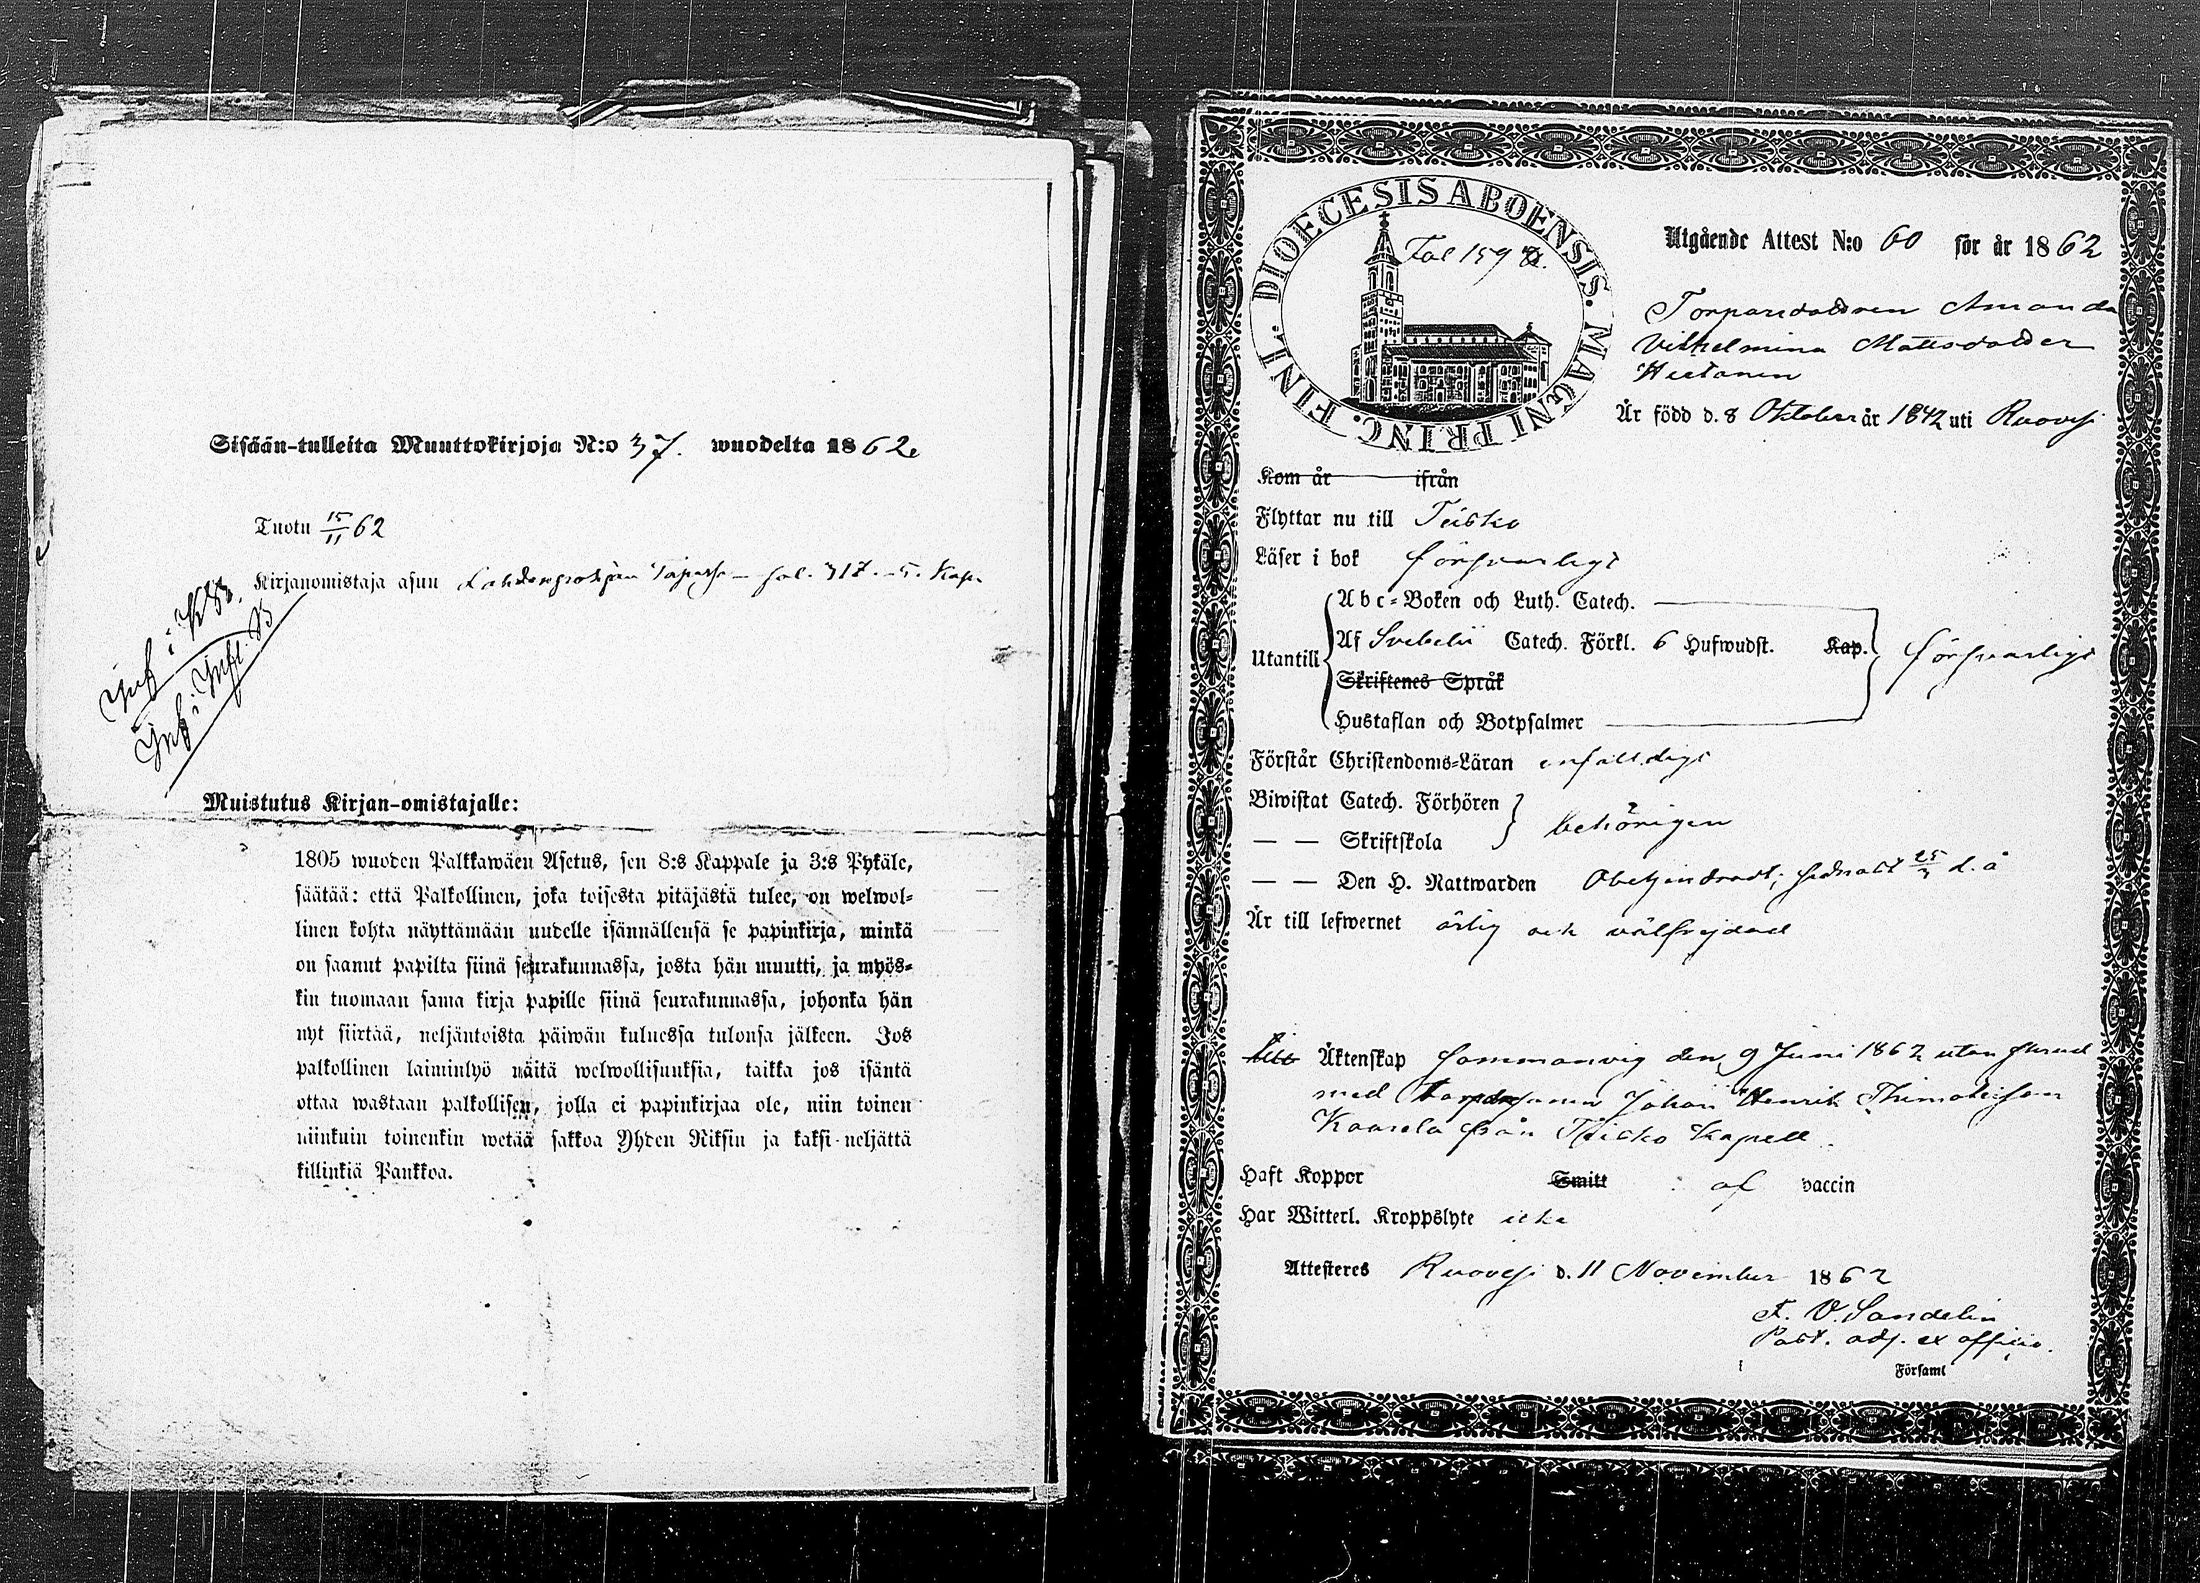 Sisään-tulleita Muuttokirjoja N:o 37. wuodelta 1862.
Tuotu 15/11 62
Kirjanomistaja asuu Lahdenpohjan fol. 317. Kap.
Inf i Kb.
Inf i Infl. B
Muistutus Kirjan-omistajalle:
1805 wuoden Palkkawäen Asetus, sen 8:s Kappale ja 3:s Pykäle,
säätää: että Palkollinen, joka toisesta pitäjästä tulee, on welwol-
linen kohta näyttämään uudelle isännällensä se papinkirja, minkä
on saanut papilta siinä seurakunnassa, josta hän muutti, ja myös-
kin tuomaan sama kirja papille siinä seurakunnassa, johonka hän
nyt siirtää, neljäntoista päiwän kuluessa tulonsa jälkeen. Jos
palkollinen laiminlyö näitä welwollisuuksia, taikka jos isäntä
ottaa wastaan palkollisen, jolla ei papinkirjaa ole, niin toinen
niinkuin toinenkin wetää sakkoa Yhden Riksin ja kaksi neljättä
killinkiä Pankkoa.
DIOECESIS ABOENSIS. MAGNI PRINC. FINL.
Fol 159
Utgående Attest N:o 60 för år 1862
Torparedottren Amanda
Vilhelmina Mattsdotter
Hietanen
Är född d. 8 Oktober år 1842 uti Ruovesi
Kom år ifrån
Flyttar nu till Teisko
Läser i bok försvarligt
Abc-Boken och Luth. Catech.
Utantill Af Svebelii Catech. Förkl. 6 Hufwudst. Kap. försvarligt
Skriftenes Språk
Hustaflan och Botpsalmer
Förstår Christendoms-Läran enfaldigt
Biwistat Catech. Förhören
— — Skriftskola behörigen
— — Den H. Nattwarden Obehindradt, sednast 25 d. å
Är till lefwernet ärlig och välfrejdad
Äktenskap Sammanvig den 9 Juni 1862 utan
med Johan Henrik Thimoteison
Kaarela från Teisko Kapell.
Haft Koppor Smitt af vaccin
Har Witterl. Kroppslyte icke
Attesteres Ruovesi d. 11 November 1862
F. V. Sandelin
Past. adj. ex officio.
Församl